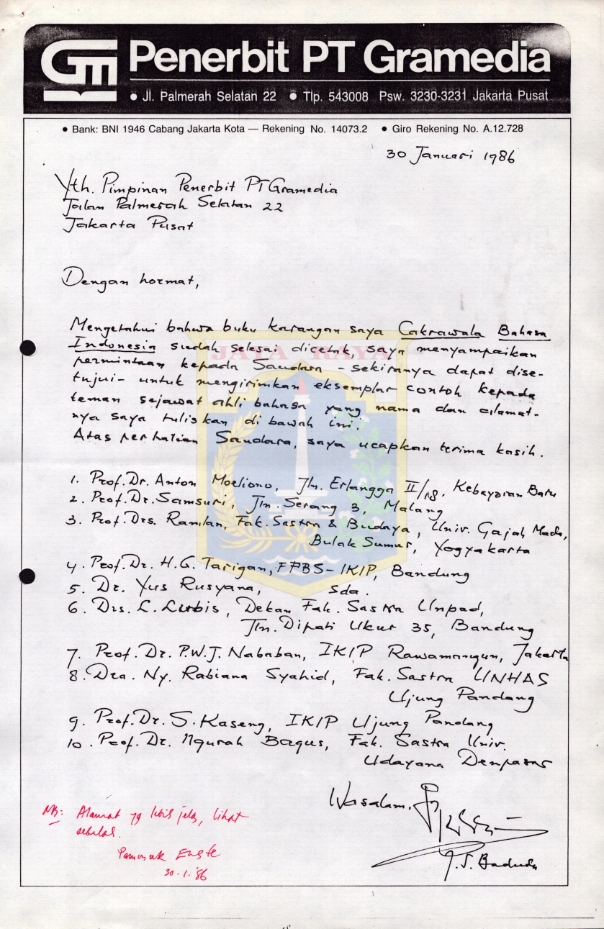 Gm Penerbit PT Gramedia
• Jl. Palmerah Selatan 22 • Tlp. 543008 Psw. 3230-3231 Jakarta Pusat
• Bank: BNI 1946 Cabang Jakarta Kota — Rekening No. 14073.2 • Giro Rekening No. A.12.728
30 Januari 1986
Yth. Pimpinan Penerbit PT Gramedia
Jalan Palmerah Selatan 22
Jakarta Pusat
Dengan hormat,
Mengetahui bahwa buku karangan saya Cakrawala Bahasa
Indonesia sudah selesai dicetak saya menyampaikan
permintaan kepada Saudara - sekiranya dapat dise-
tujui - untuk mengirimkan eksemplar contoh kepada
teman sejawat ahli bahasa yang nama dan alamat-
nya saya tuliskan di bawah ini.
Atas perhatian Saudara, saya ucapkan terima kasih.
JAYA RAYA
1. Prof. Dr. Anton Moeliono, Jln. Erlangga II/18, Kebayoran Baru
2. Prof. Dr. Samsuri, Jln. Serang 3, Malang
3. Prof. Drs. Ramlan, Fak. Sastra & Budaya, Univ. Gajah Mada,
Bulak Sumur, Yogyakarta
4. Prof. Dr. H.G. Tarigan, FPBS - IKIP, Bandung
5. Dr. Yus Rusyana, sda.
6. Drs. L. Lubis, Dekan Fak. Sastra Unpad,
Jln. Dipati Ukur 35, Bandung
7. Prof. Dr. P.W.J. Nababan, IKIP Rawamangun, Jakarta
8. Dra. Ny. Rabiana Syahid, Fak. Sastra UNHAS
Ujung Pandang
9. Prof. Dr. S. Kaseng, IKIP Ujung Pandang
10. Prof. Dr. Ngurah Bagus, Fak. Sastra Univ.
Udayana Denpasar
Wasalam,
J.S. Badudu
NB: Alamat yg lebih jelas, lihat
sebelah.
Pamusuk
30-1-'86